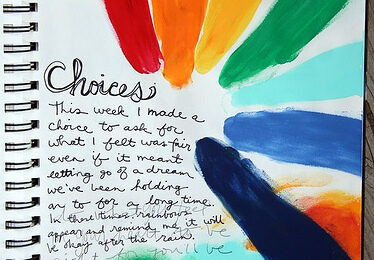 Choices
This week I made a
choice to ask for
what I felt was fair
even if it meant
letting go of a dream
we've been holding
on to for a long time.
In those times, rainbows
appear and remind me it will
be okay after the rains.
you'll be